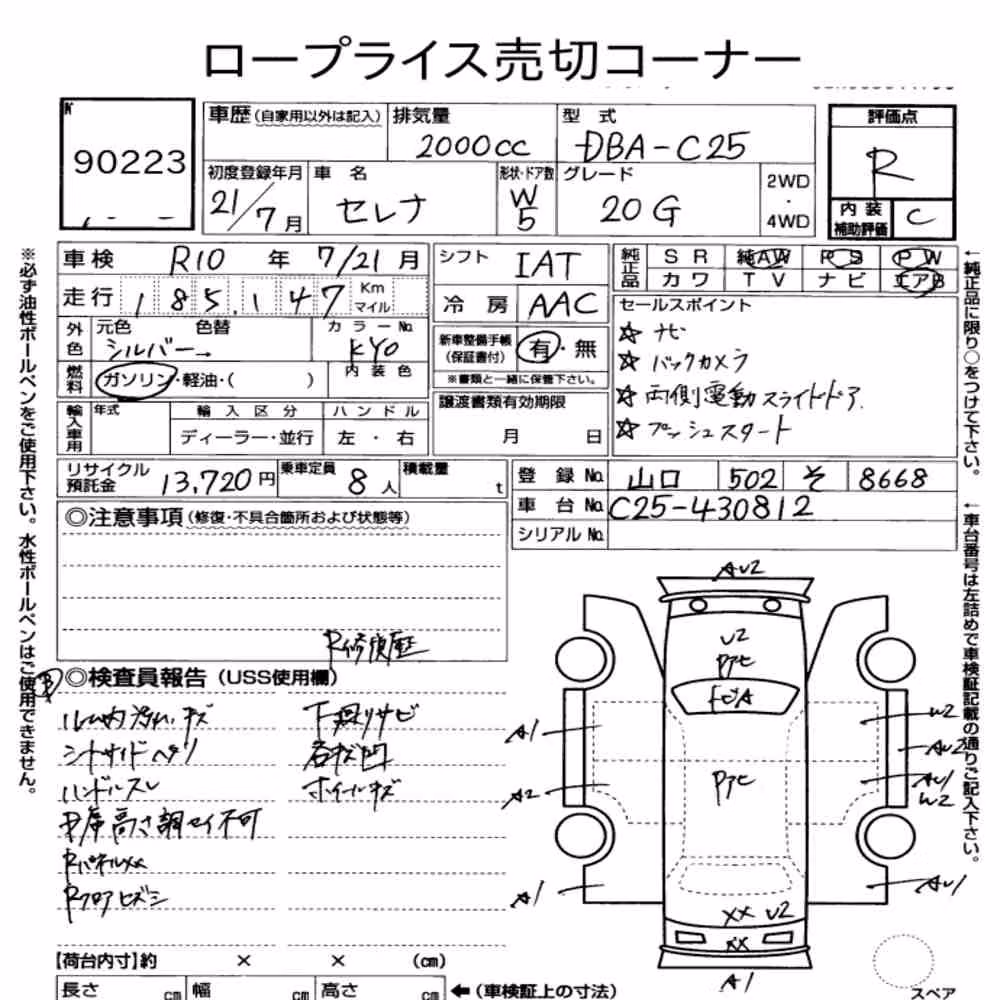 ロープライス売切コーナー
90223
車歴(自家用以外は記入) 排気量 2000cc 型式 DBA-C25
評価点 R
内装補助評価 C
初度登録年月 21/7月 車名 セレナ 形状・ドア数 W 5 グレード 20G 2WD・4WD
車検 R10年 7/21月
走行 185,147 Km マイル
外色 元色 シルバー 色替 カラーNo. KY0
燃料 ガソリン・軽油・( ) 内装色
輸入車用 年式 輸入区分 ディーラー・並行 ハンドル 左・右
シフト IAT
冷房 AAC
新車整備手帳(保証書付) 有・無
※書類と一緒に保管下さい。
譲渡書類有効期限
月 日
純正品 SR 純AW PS PW
カワ TV ナビ エアB
セールスポイント
☆ ナビ
☆ バックカメラ
☆ 両側電動スライドドア
☆ プッシュスタート
リサイクル預託金 13,720円 乗車定員 8人 積載量 t
登録No. 山口 502 そ 8668
車台No. C25-430812
シリアルNo.
※必ず油性ボールペンをご使用下さい。水性ボールペンはご使用できません。
←純正品に限り○をつけて下さい。
←車台番号は左詰めで車検証記載の通りご記入下さい。
◎注意事項(修復・不具合箇所および状態等)
R修復歴
◎検査員報告(USS使用欄)
ルーム内汚れ、キズ 下廻りサビ
シートサイドヘリ 各状凹
ハンドルスレ ホイールキズ
高さ調セイ不可
RパネルXX
Rフロアヒズミ
AU2
U2
アト
A1
A2
A1
W2
AU2
AU1
W2
AU1
アト
XX U2
XX
A1
【荷台内寸】約 × × (cm)
長さ cm 幅 cm 高さ cm ←(車検証上の寸法)
スペア